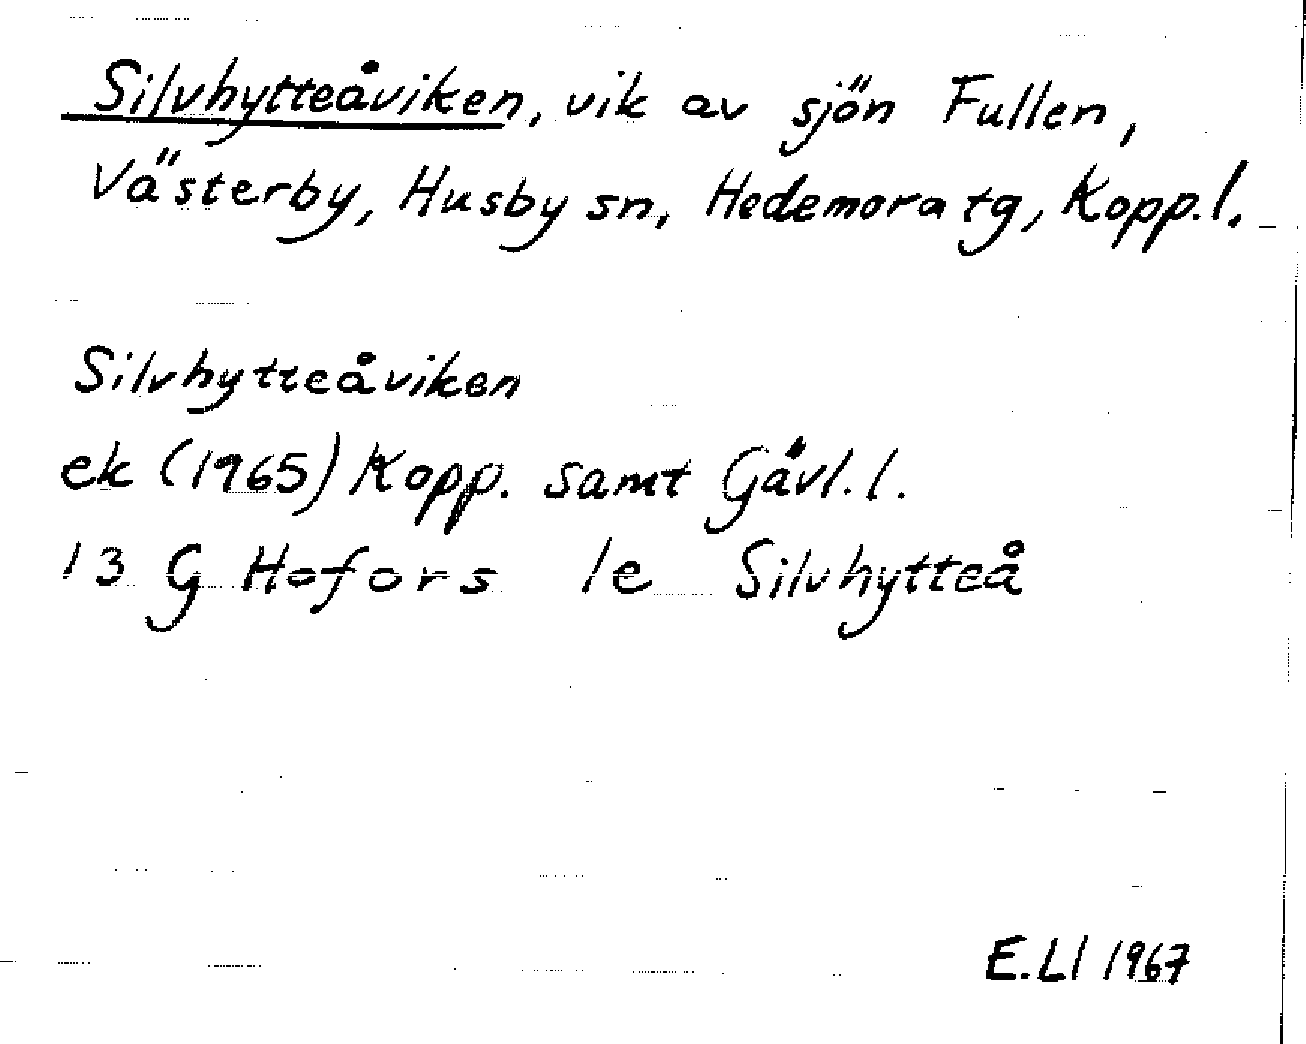 Silvhytteåviken, vik av sjön Fullen,
Västerby, Husby sn, Hedemora tg, Kopp.l.
Silvhytteåviken
ek (1965) Kopp. samt Gävl.l.
13 G Hofors 1e Silvhytteå
E.Ll 1967